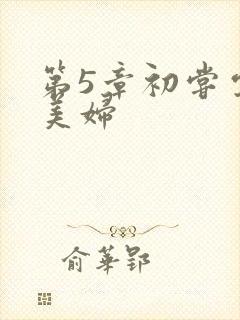 第5章初尝
美妇
俞华郢